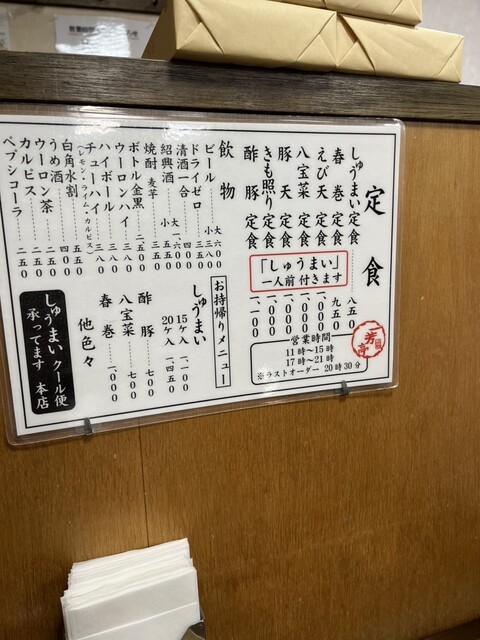 定食
しゅうまい定食 八五〇
春巻定食 九五〇
えび天定食 一、〇〇〇
八宝菜定食 一、〇〇〇
豚天定食 一、〇〇〇
きも照り定食 一、〇〇〇
酢豚定食 一、一〇〇
「しゅうまい」
一人前 付きます
一芳亭
営業時間
11時〜15時
17時〜21時
※ラストオーダー 20時30分
飲物
ビール 大 六〇〇
小 三八〇
ドライゼロ
清酒一合
紹興酒
焼酎 麦 芋
ボトル金黒
ウーロンハイ 三八〇
ハイボール 三八〇
チューハイ 三八〇
(レモン・ライム・カルピス)
白角水割
うめ酒 四〇〇
ウーロン茶 二五〇
カルピス 二五〇
ペプシコーラ 二五〇
お持帰りメニュー
しゅうまい
15ヶ入 一、一〇〇
20ヶ入 一、四五〇
酢豚 七〇〇
八宝菜 七〇〇
春巻 一、〇〇〇
他色々
しゅうまい クール便
承ってます 本店